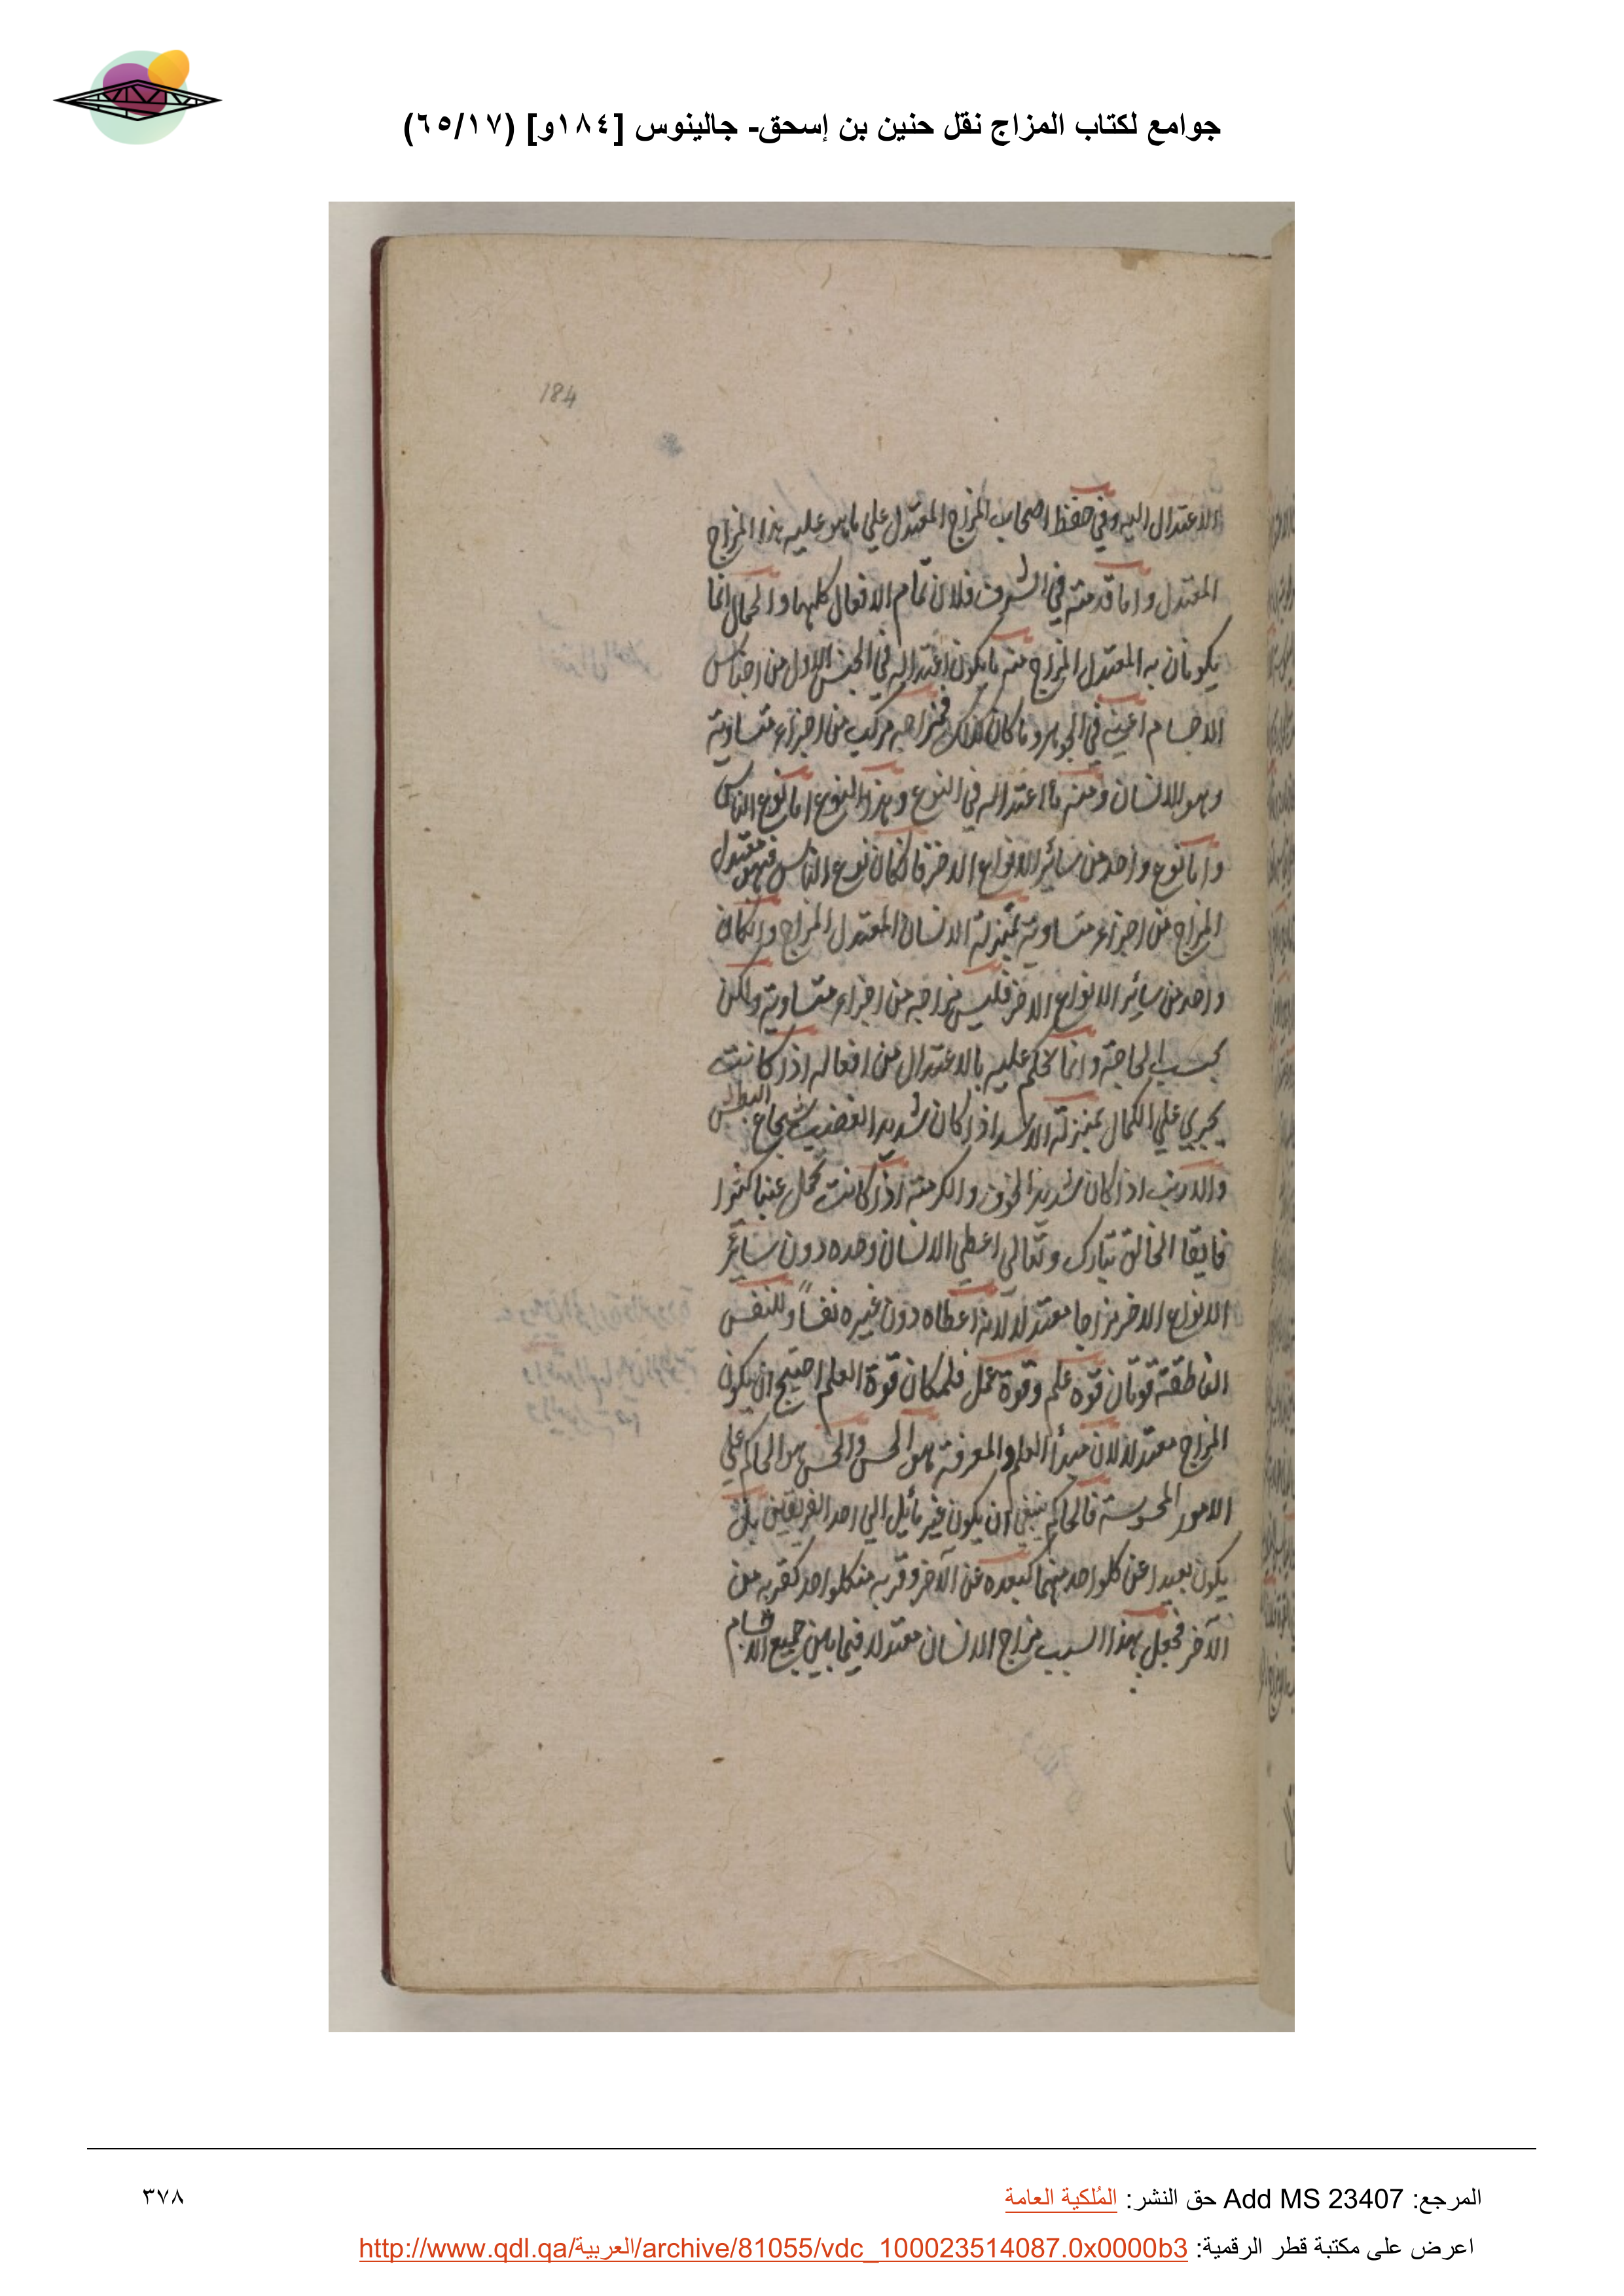 جوامع لكتاب المزاج نقل حنين بن إسحق- جالينوس [١٨٤و] (٦٥/١٧)
184
الاعتدال اليه وفي حفظ اصحاب المزاج المعتدل علي ما هو عليه هذا المزاج
المعتدل واما قدمته في الشرف فلان تمام الافعال كلها والكمال انما
يكونان به المعتدل المزاج منه ما يكون اعتداله في الجنس الاول من اجناس
الاجسام اعني في الجوهر وما كان كذلك فمزاجه مركب من اجزاء متساوية
وهو الانسان ومنه ما اعتداله في النوع وهذا النوع اما نوع الناس
واما نوع واحد من سائر الانواع الاخر فان كان نوع الناس فهو معتدل
المزاج من اجزاء متساوية بمنزلة الانسان المعتدل المزاج وان كان
واحد من سائر الانواع الاخر فليس مزاجه من اجزاء متساوية ولكن
بحسب الحاجة وانما يحكم عليه بالاعتدال من افعاله اذا كانت
يجري علي الكمال بمنزلة الاسد اذا كان شديد الغضب شجاع البطش
والارنب اذا كان شديد الخوف والكرمة اذا كانت تحمل عنبا كثيرا
فايقا الخالق تبارك وتعالي اعطي الانسان وحده دون سائر
الانواع الاخر مزاجا معتدلا لانه اعطاه دون غيره نفسا وللنفس
الناطقة قوتان قوة علم وقوة عمل فلمكان قوة العلم احتيج ان يكون
المزاج معتدلا لان مبدأ العلم والمعرفة هو الحس والحس هو الحاكم علي
الامور المحسوسة فالحاكم ينبغي ان يكون غير مائل الي احد الفريقين بل
يكون بعيدا عن كلواحد منهما كبعده عن الآخر وقربه من كلواحد كقربه من
الآخر فجعل بهذا السبب مزاج الانسان معتدلا فيما بين جميع الاجسام
المرجع: Add MS 23407 حق النشر: المُلكية العامة
٣٧٨
اعرض على مكتبة قطر الرقمية: http://www.qdl.qa/العربية/archive/81055/vdc_100023514087.0x0000b3